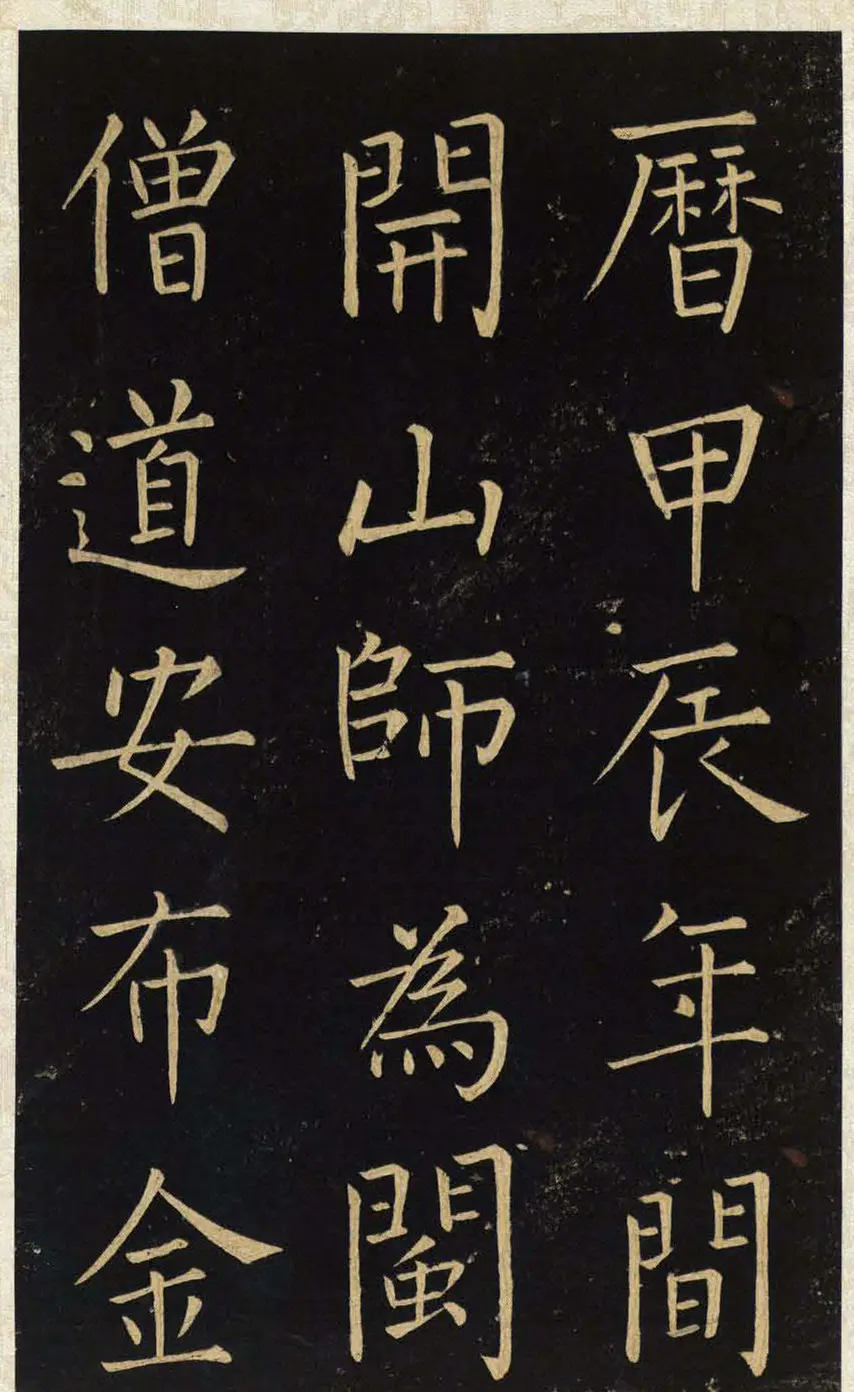 暦甲辰年間
開山師為閩
僧道安布金